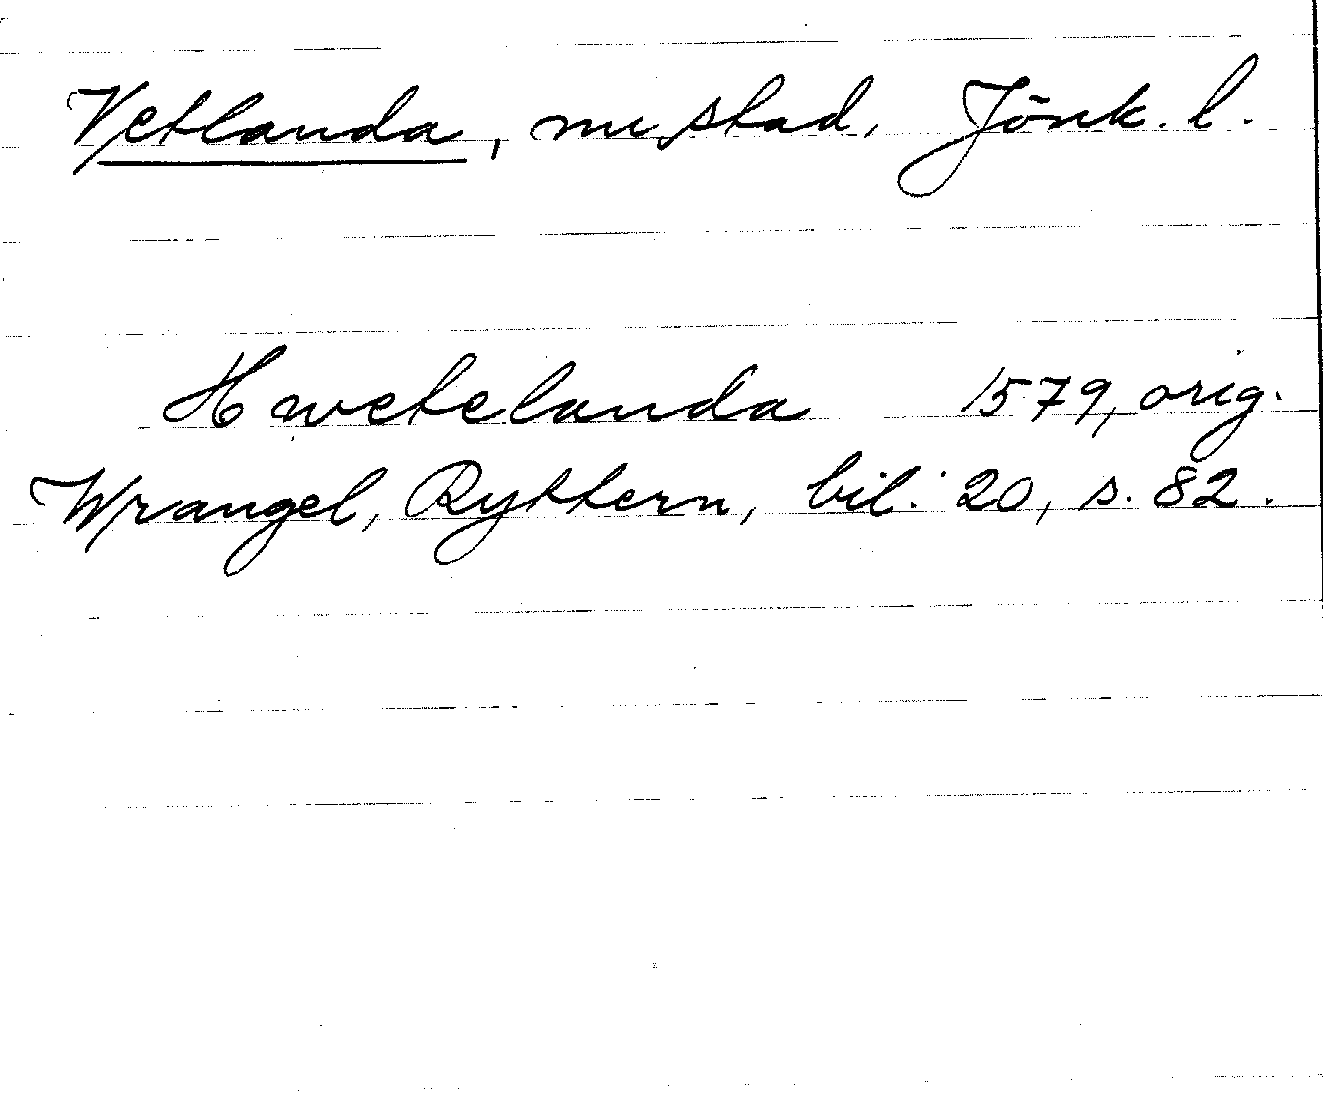 Vetlanda, nu stad, Jönk. l.
Hwetelanda 1579, orig.
Wrangel, Ryttern, bil. 20, s. 82.